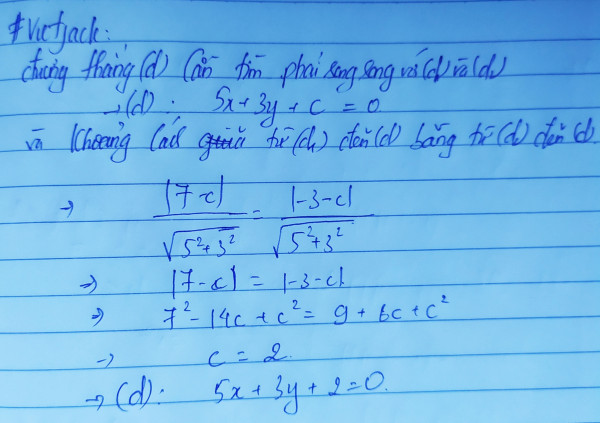 #Vietjack:
đường thẳng (d) Cần tìm phải song song với (d₁) và (d₂)
→ (d): 5x + 3y + c = 0
và Khoảng cách giữa từ (d₁) đến (d) bằng từ (d₂) đến (d).
→ |7-c| / √5²+3² = |-3-c| / √5²+3²
→ |7-c| = |-3-c|
→ 7² - 14c + c² = 9 + 6c + c²
→ c = 2.
→ (d): 5x + 3y + 2 = 0.